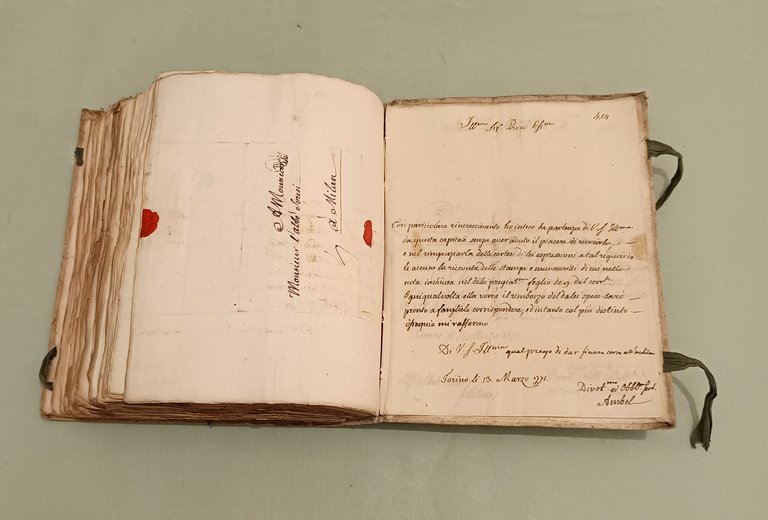 A Monsieur
Monsieur l'abbé
à Milan
454
Ill.mo Sig.
Con particolare rincrescimento ho inteso la partenza di V. S. Ill.ma
da questa capitale senza aver avuto il piacere di riverirla,
e nel ringraziarla delle cortesi di lei espressioni a tal riguardo
le accuso la ricevuta delle stampe e manoscritti di cui nella
nota inchiusa nel di lei foglio de 9. del corr.te
Ogniqualvolta ella vorrà il rimborzo del da lei speso sarò
pronto a farglielo corrispondere, ed intanto col più distinto
ossequio mi raffermo
Di V. S. Ill.ma qual prego di dar sicuro corso all'
Torino li 13. Marzo 1771.
Divot.mo ed Obbl.
Ambel